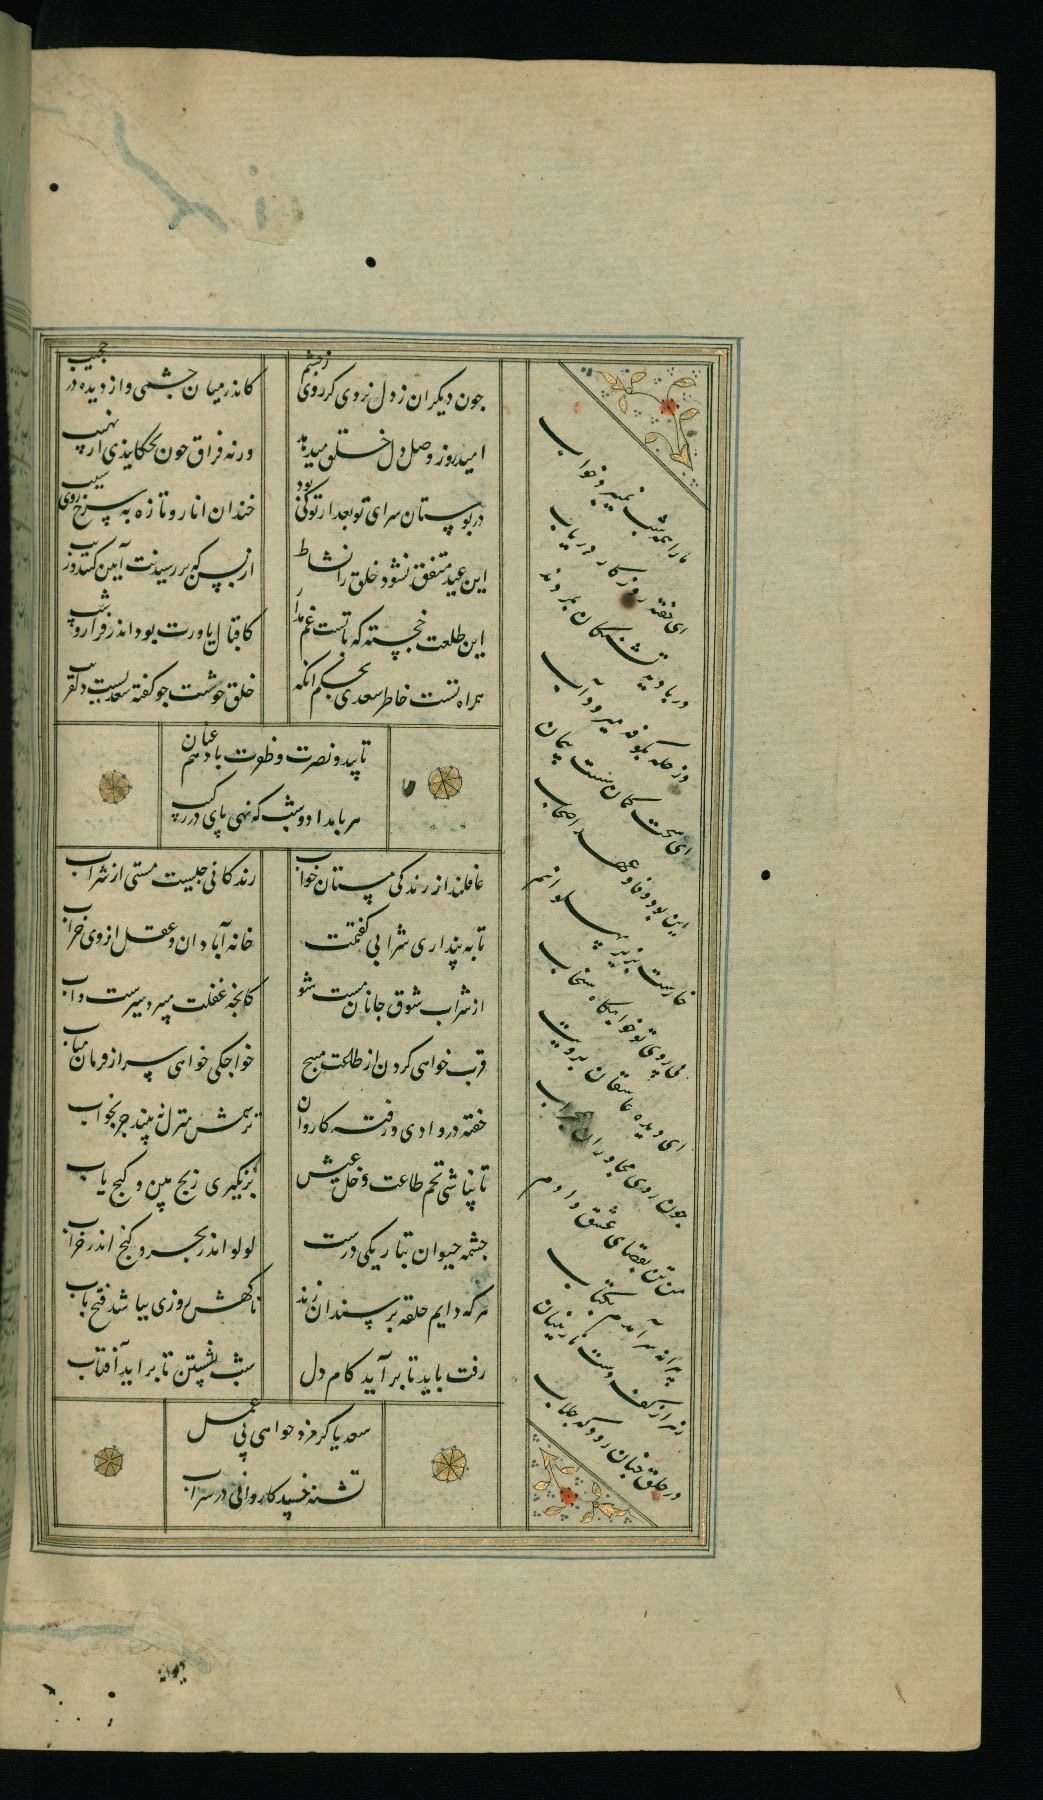 چون دیکران ز دل نروی کر روی ز چشم
کاندر میان جشمی و از دیده در حجیب
امید روز وصل دل خلق میدهد
ورنه فراق خون بچکانیدی از نهیب
در بوستان سرای تو بعد از تو کی بود
خندان انار و تازه به و سرخ روی سیب
این عید متفق نشود خلق را نشاط
این طلعت خجسته که با تست غم مدار
کاقبال یاورت بود اندر فراز و شیب
همراه تست خاطر سعدی بحکم آنکه
خلق خوشت جو کفته سعدیست دلفریب
تایید و نصرت و ظفرت باد همعنان
هر بامداد و شب که نهی پای در رکیب
غافلند از زندکی مستان خواب
زندکانی چیست مستی از شراب
تا نه پنداری شرابی کفتمت
خانه آبادان و عقل از وی خراب
از شراب شوق جانان مست شو
کانجه عقلت میبرد شرست و آب
قرب خواهی کردن از طاعت مپیچ
خواجکی خواهی سر از فرمان متاب
خفته در وادی و رفته کاروان
ترسمش منزل نه بیند جز بخواب
تا نپاشی تخم طاعت دخل عیش
برنکیری رنج بین و کنج یاب
چشمه حیوان بتاریکی درست
لولو اندر بحر و کنج اندر خراب
هر که دایم حلقه بر سندان زند
ناکهش روزی بباشد فتح باب
رفت باید تا برآید کام دل
شب نشستن تا برآید آفتاب
سعدیا کر مزد خواهی بی عمل
تشنه خسپد کاروانی در سراب
ما را همه شب نمیبرد خواب
ای خفته روزکار دریاب
در بادیه تشنکان بمردند
وز حله بکوفه میرود آب
ای سخت کمان سست پیمان
این بود وفا و عهد اصحاب
خارست بزیر پهلوانم
بی روی تو خوابکاه سنجاب
ای دیده عاشقان برویت
چون روی مجاوران بمحراب
من تن بقضای عشق دادم
پیرانه سر آمدم بکتاب
زهر از کف دست نازنینان
در حلق جنان رود که جلاب